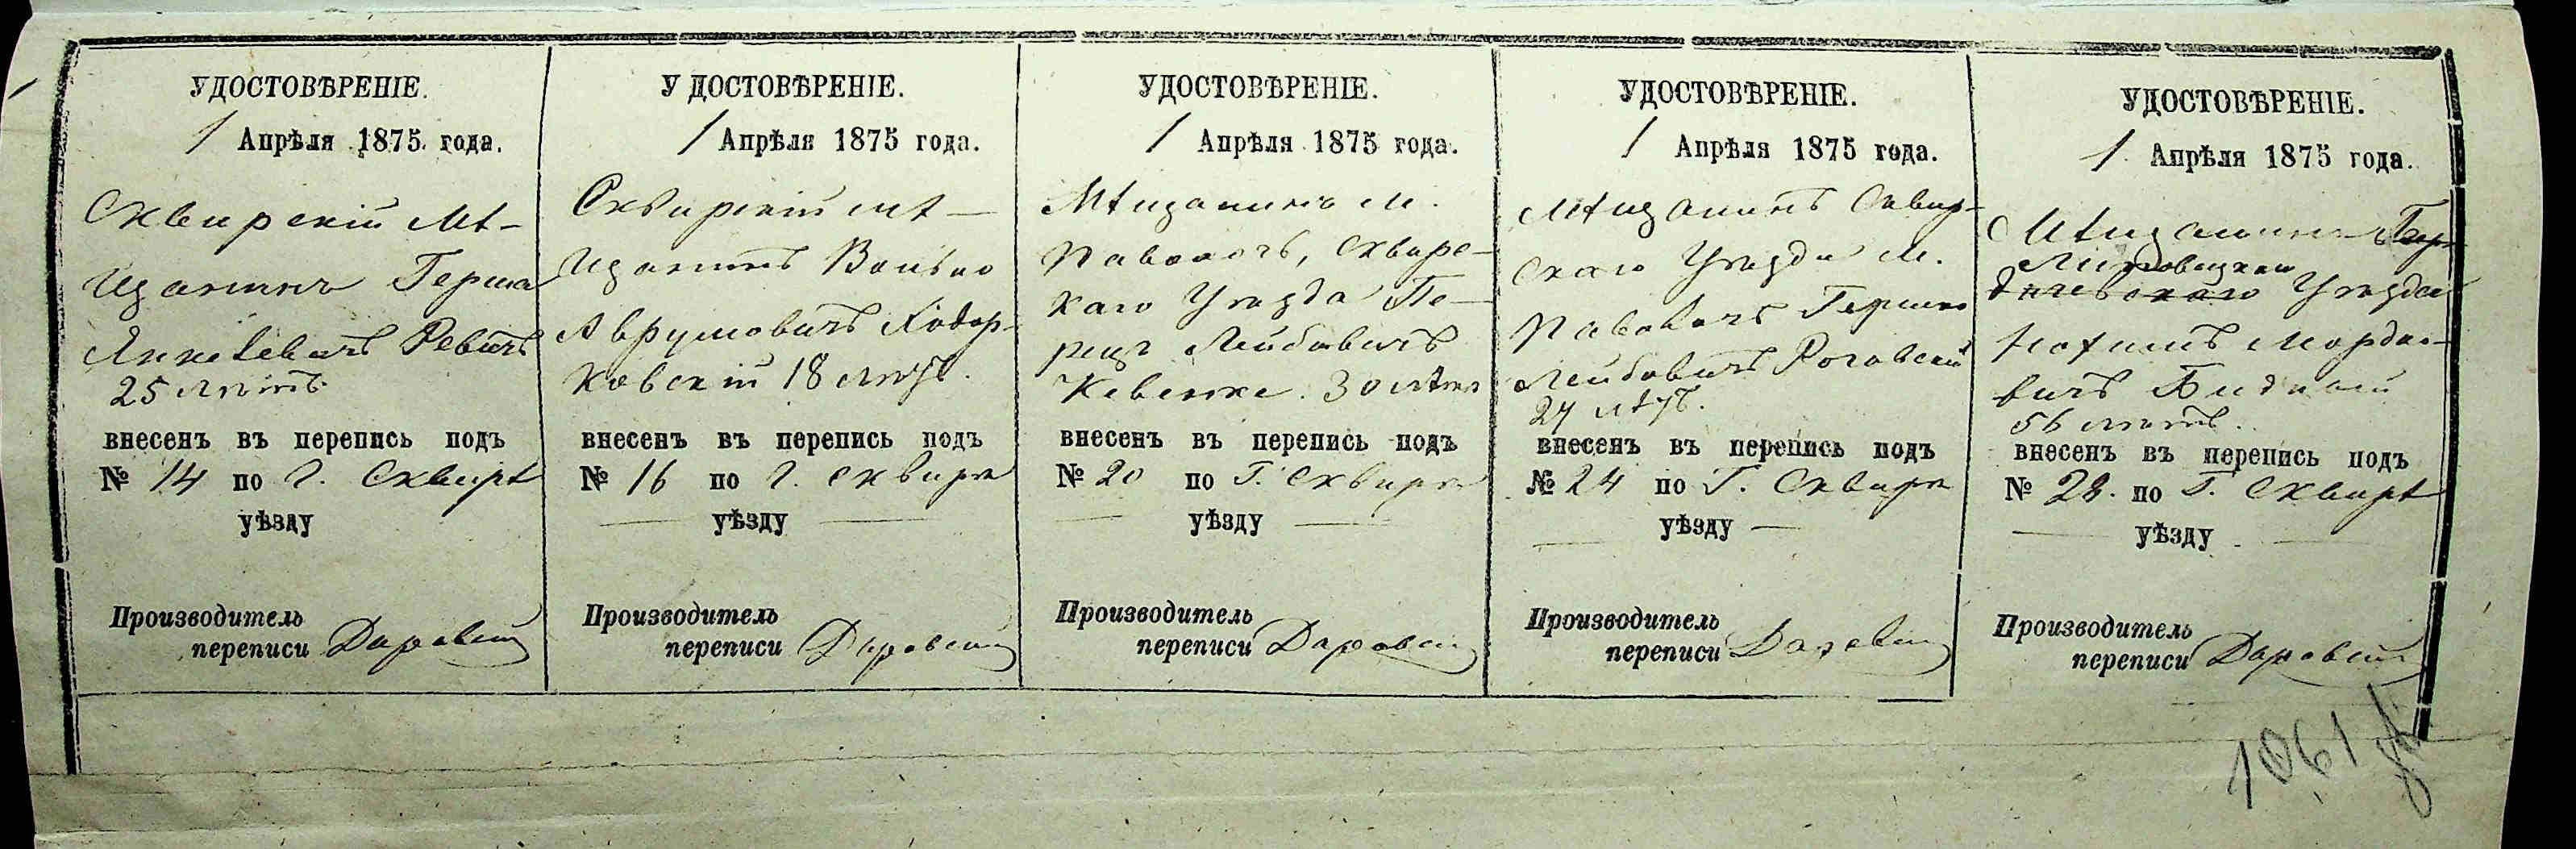 УДОСТОВѢРЕНІЕ.
1 Апрѣля 1875 года.
Сквирскій мѣ-
щанинъ Герша
Янкелевичъ Ревичъ
25 лѣтъ
внесенъ въ перепись подъ
№ 14 по г. Сквирѣ
уѣзду
Производитель
переписи Даровскій
УДОСТОВѢРЕНІЕ.
1 Апрѣля 1875 года.
Сквирскій мѣ-
щанинъ Волько
Аврумовичъ Ходор-
ковскій 18 лѣтъ.
внесенъ въ перепись подъ
№ 16 по г. Сквирѣ
уѣзду
Производитель
переписи Даровскій
УДОСТОВѢРЕНІЕ.
1 Апрѣля 1875 года.
Мѣщанинъ м.
Паволочъ, Сквирс-
каго Уѣзда Пе-
рецъ Лейбовичъ
30 лѣтъ
внесенъ въ перепись подъ
№ 20 по Г. Сквирѣ
уѣзду
Производитель
переписи Даровскій
УДОСТОВѢРЕНІЕ.
1 Апрѣля 1875 года.
Мѣщанинъ Сквир-
скаго Уѣзда м.
Паволочъ Гершко
Лейбовичъ Роговскій
27 лѣтъ.
внесенъ въ перепись подъ
№ 24 по Г. Сквирѣ
уѣзду
Производитель
переписи Даровскій
УДОСТОВѢРЕНІЕ.
1 Апрѣля 1875 года.
Мѣщанинъ Бер-
дичевскаго Уѣзда
Мордко-
вичъ
56 лѣтъ.
внесенъ въ перепись подъ
№ 28. по Г. Сквирѣ
уѣзду
Производитель
переписи Даровскій
1061